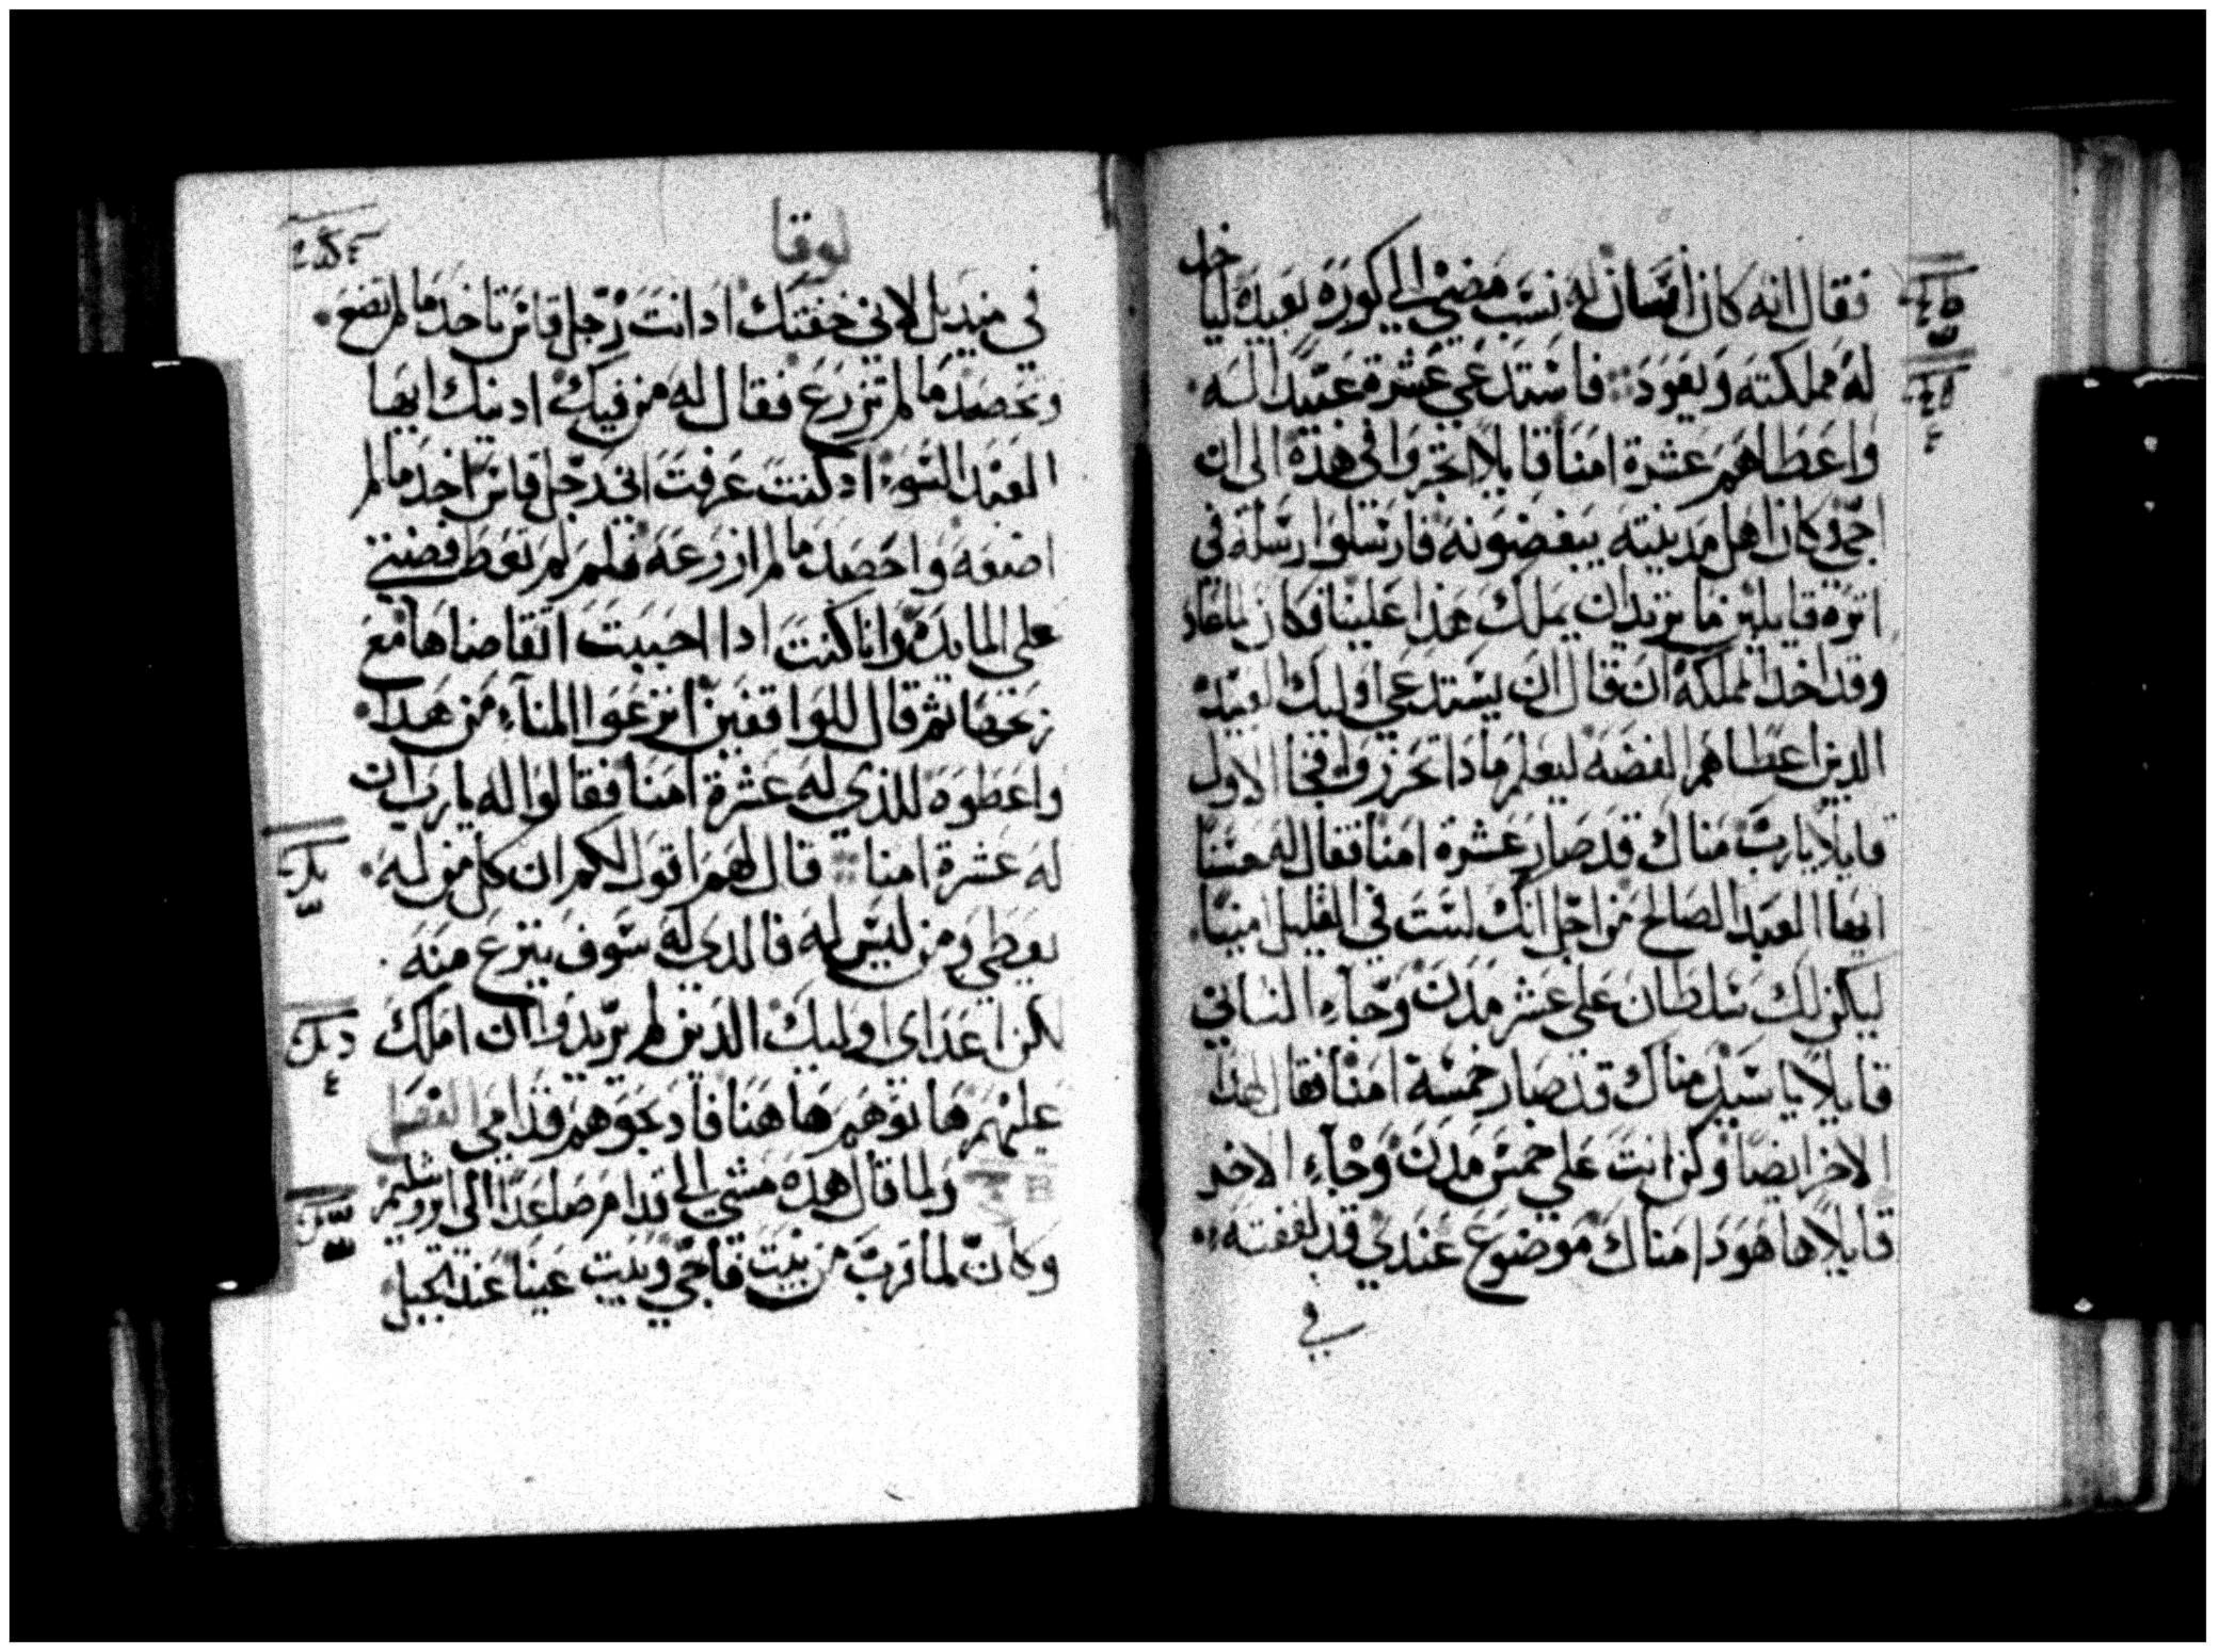 فقال انه كان انسان له نسب مضى الى كورة بعيدة لياخد
له مملكته ويعود فاستدعى عشرة عبيد اله
واعطاهم عشرة امنا قايلا اتجروا فى هذه الى ان
اجى وكان اهل مدينته يبغضونه فارسلوا رسله فى
اثره قايلين ما نريد ان يملك هذا علينا فكان لما عاد
وقد اخد المملكة ان قال ان يستدعى اوليك العبيد
الدين اعطاهم الفضه ليعلم مادا تجرروا فجا الاول
قايلا يارب مناك قد صار عشرة امنا فقال له حسنا
ايها العبد الصالح من اجل انك لست في القليل امينا
ليكن لك سلطان على عشر مدن وجاء الثاني
قايلا يا سيد مناك قد صار خمسة امنا فقال لهدا
الاخر ايضا وكن انت على خمس مدن وجاء الاخر
قايلا ها هودا مناك موضوع عندي قد لففته
في
لوقا
في منديل لانى خفتك اد انت رجل قاس تاخد ما لم تضع
وتحصد ما لم تزرع فقال له من فيك ادينك ايها
العبد السوء اد كنت عرفت انى رجل قاس اخد ما لم
اضعه واحصد ما لم ازرعه فلم لم تعط فضتي
على المايده وانا كنت ادا احببت اتقاضاها مع
ربحها ثم قال للواقفين انزعوا المناء من هدا
واعطوه للذي له عشرة امنا فقالوا له يارب ان
له عشرة امنا قال لهم اقول لكم ان كل من له
يعطى ومن ليس له فالدى له سوف ينزع منه
لكن اعداى اوليك الدين لم يريدوا ان املك
عليهم هاتوهم هاهنا فادبحوهم قدامى الفصل
ولما قال هده مشى الى قدام صاعدا الى اورشليم
وكان لما قرب من بيت فاجي وبيت عينا عند الجبل